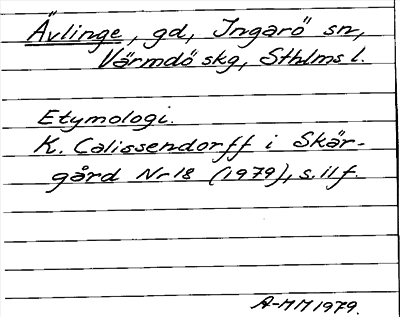 Ävlinge, gd, Ingarö sn,
Värmdö skg, Sthlms l.
Etymologi.
K. Calissendorff i Skär-
gård Nr 18 (1979), s. 11 f.
A-MM 1979.